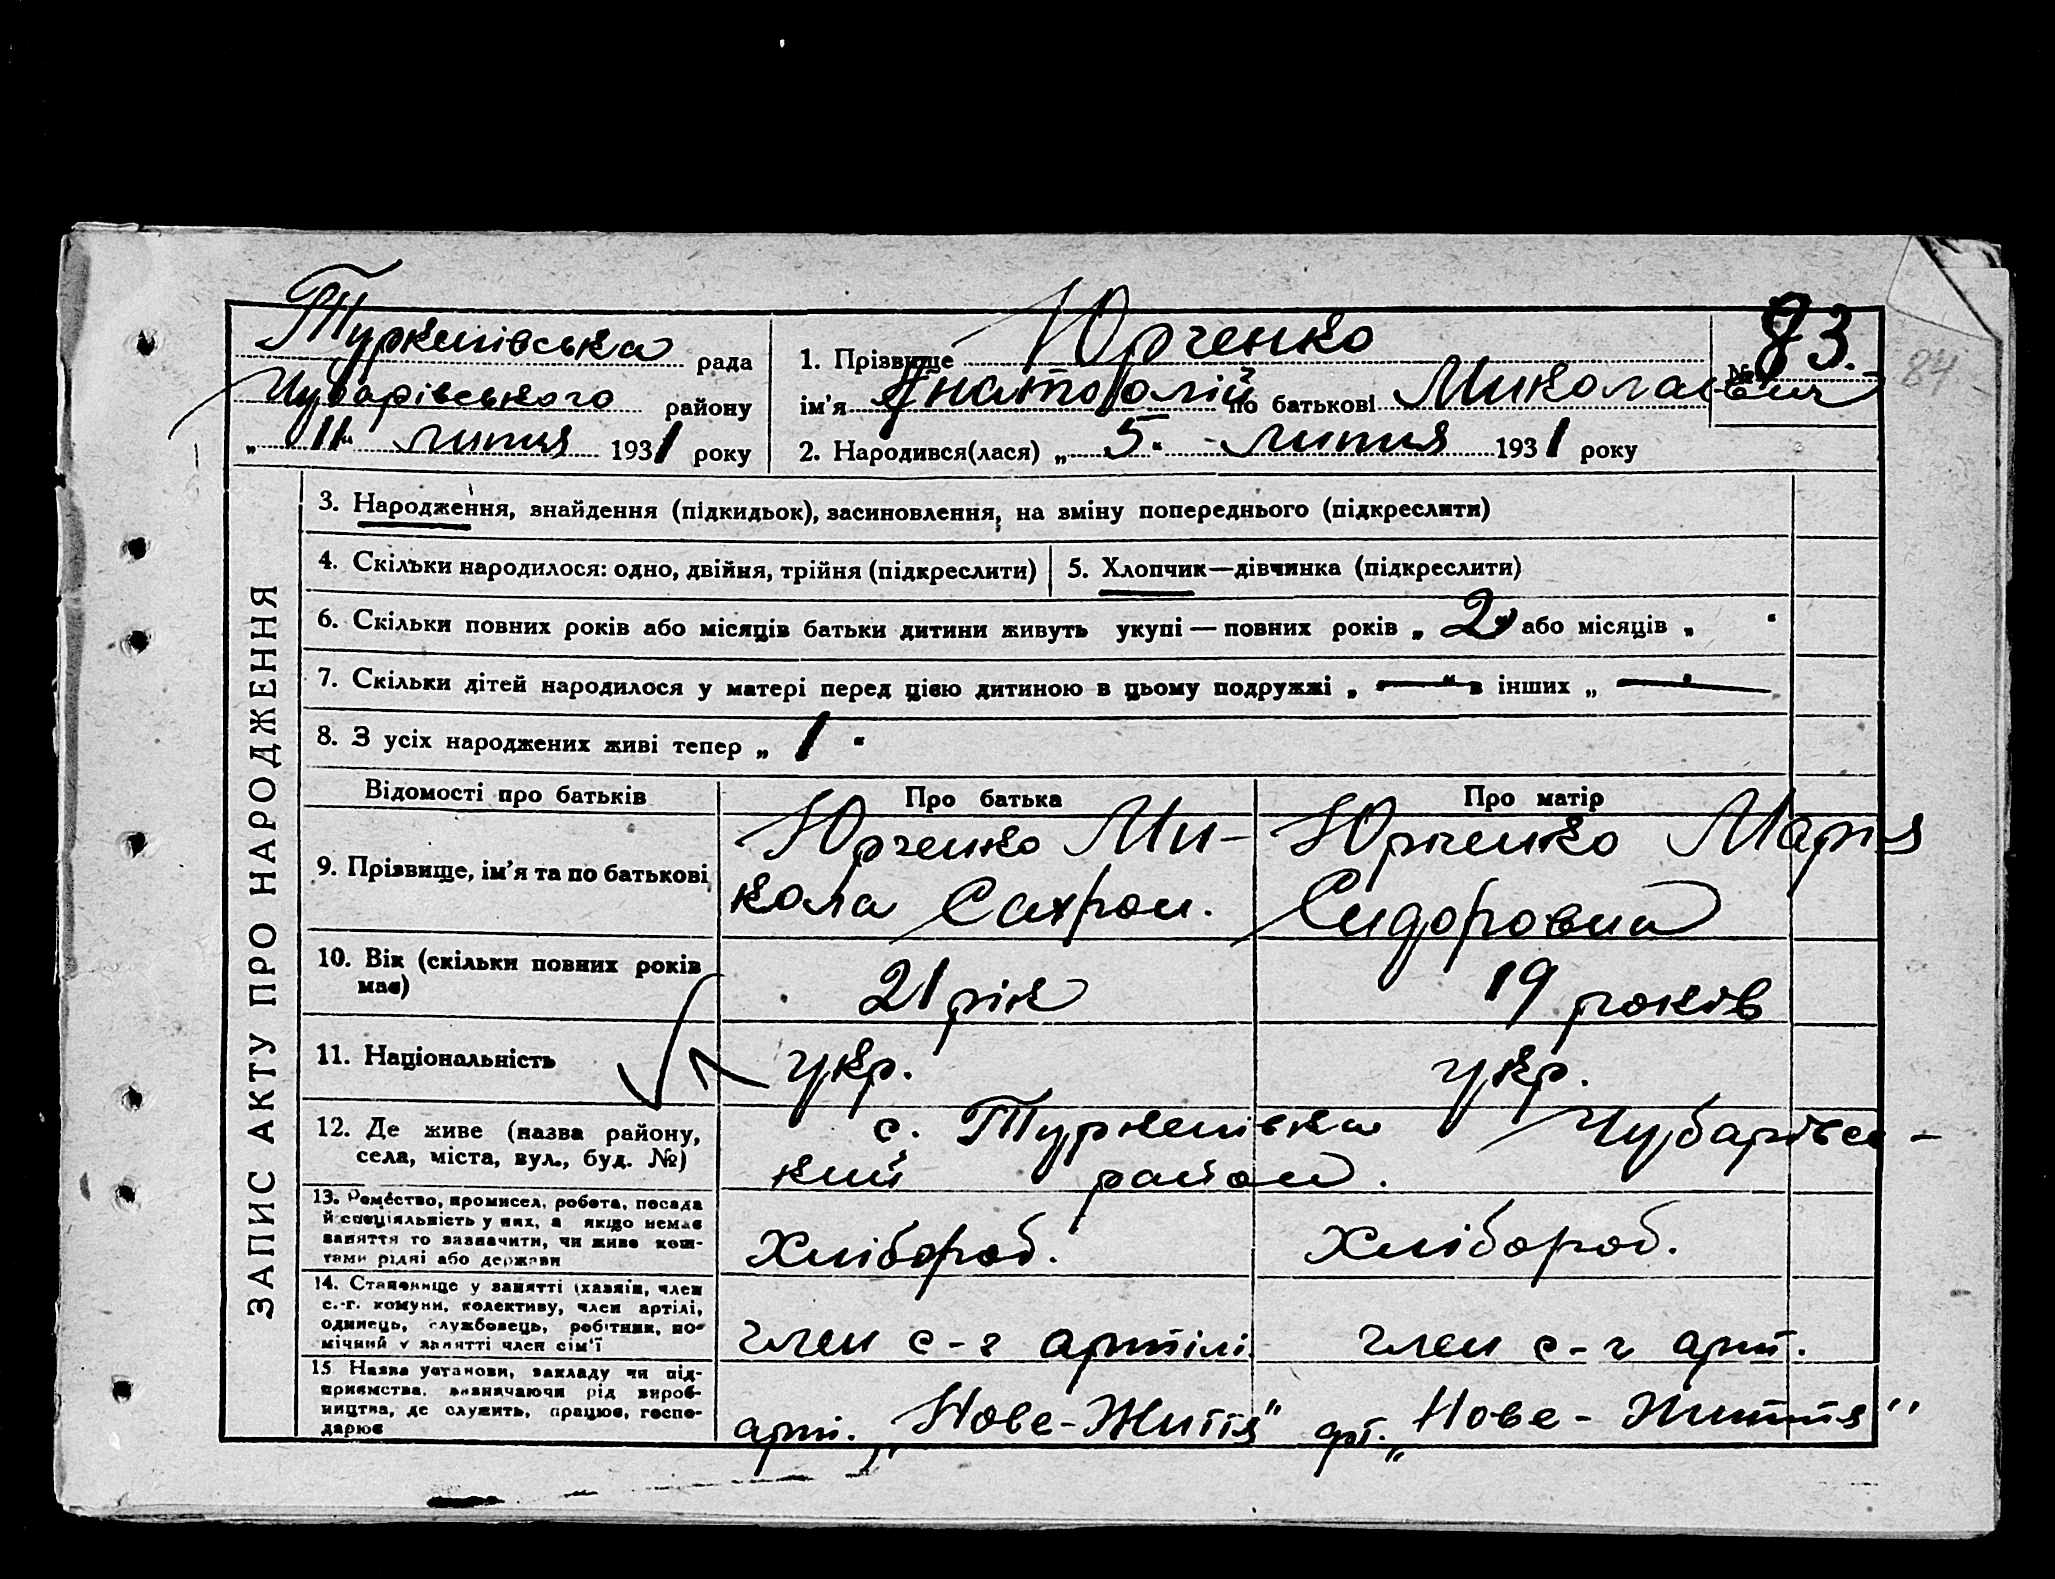 Туркенівська рада
Чубарівського району
„ 11 " липня 1931 року
1. Прізвище Юрченко
ім'я Анатолій по батькові Миколаєвич
2. Народився(лася) „ 5 " липня 1931 року
№ 83.
84
ЗАПИС АКТУ ПРО НАРОДЖЕННЯ
3. Народження, знайдення (підкидьок), засиновлення, на зміну попереднього (підкреслити)
4. Скільки народилося: одно, двійня, трійня (підкреслити)
5. Хлопчик—дівчинка (підкреслити)
6. Скільки повних років або місяців батьки дитини живуть укупі — повних років „ 2 " або місяців „ "
7. Скільки дітей народилося у матері перед цією дитиною в цьому подружжі „ — " в інших „ — "
8. З усіх народжених живі тепер „ 1 "
Відомості про батьків Про батька Про матір
9. Прізвище, ім'я та по батькові
Юрченко Ми-
кола Сахрон.
Юрченко Марія
Сидоровна
10. Вік (скільки повних років
має)
21 рік
19 років
11. Національність
укр.
укр.
12. Де живе (назва району,
села, міста, вул., буд. №)
с. Туркенівка Чубарівсь-
кий район.
13. Ремество, промисел, робота, посада
й спеціяльність у них, а якщо немає
заняття то зазначити, чи живе кош-
тами рідні або держави
Хлібороб.
Хлібороб.
14. Становище у занятті (хазяїн, член
с.-г. комуни, колективу, член артілі,
одинець, службовець, робітник, по-
мічний у занятті член сім'ї
член с-г артілі
член с-г арт.
15 Назва установи, закладу чи під-
приємства, визначаючи рід вироб-
ництва, де служить, працює, госпо-
дарює
арт. „Нове-Життя"
арт. „Нове-Життя"